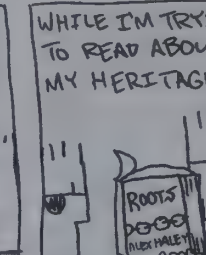 WHILE I'M TRY
TO READ ABOU
MY HERITAG
ROOTS
ALEX HALEY